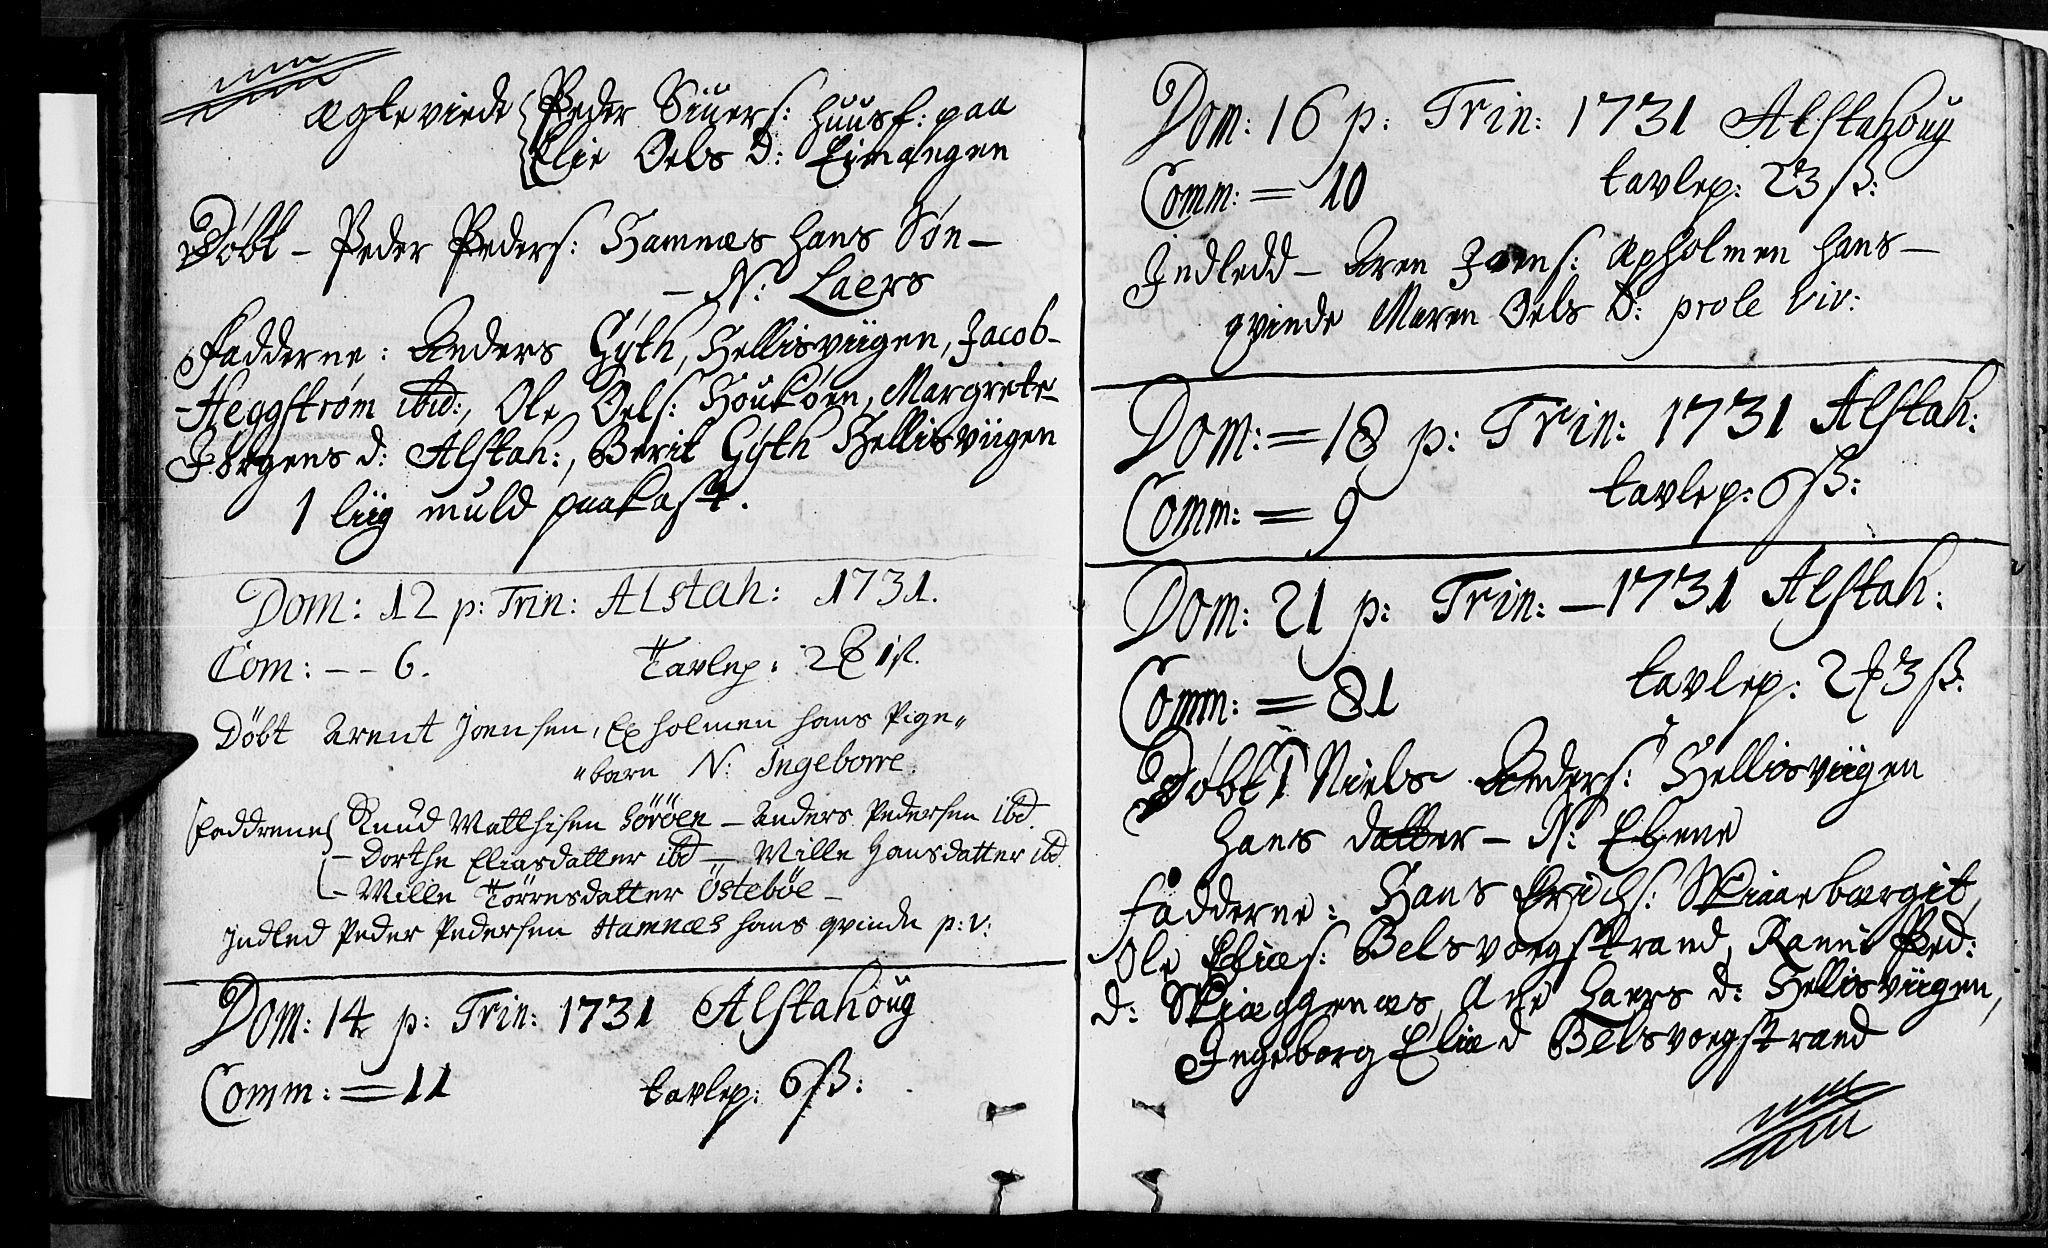 Ægte viede Peder Siuers: huusf: paa
Elie Oels D:
Døbt – Peder Peders: Hamnæs hans Søn –
– N: Laers
Fadderne: Anders Gÿth, Hellisviigen, Jacob-
-Heggstrøm ibid:, Ole Oels: Houkøen, Margrete-
Jørgens d: Alstah:, Berit Gÿth Hellisviigen
1 liig muld paakast.
Dom: 12 p: Trin: Alstah: 1731.
Com: – – 6. Tavlep:
Døbt Arent Joensen, Exholmen hans Pige„
„barn N: Ingeborre.
Faddrene Knud Matthisen Söröen – Anders Pedersen ibd.
– Dorthe Eliasdatter ibd – Mille Hansdatter ibd.
– Mille Törresdatter Östebøe –
Indled Peder Pedersen Hamnæs hans qvinde p: v:
Dom: 14 p: Trin: 1731 Alstahoug
Comm: = 11 tavlep: 6 ß:
Dom: 16 p: Trin: 1731 Alstahoug
Comm: = 10 tavlep: 23 ß:
Indledd – Aren Joens: Æpholmen hans –
qvinde Maren Oels D: prole viv:
Dom: = 18 p: Trin: 1731 Alstah:
Comm: = 9 tavlep: 6 ß:
Dom: 21 p: Trin: – 1731 Alstah:
Comm: = 81 tavlep: 2 3 ß:
Døbt Niels Anders: Hellisviigen
hans datter – N: Ebene
fadderne: Hans Erichs:
Ole Elias: Belsvogstrand, Ranni Ped:
d: Skiæggenæs, Ane Laers d: Hellisviigen,
Ingeborg Elia d Belsvogstrand